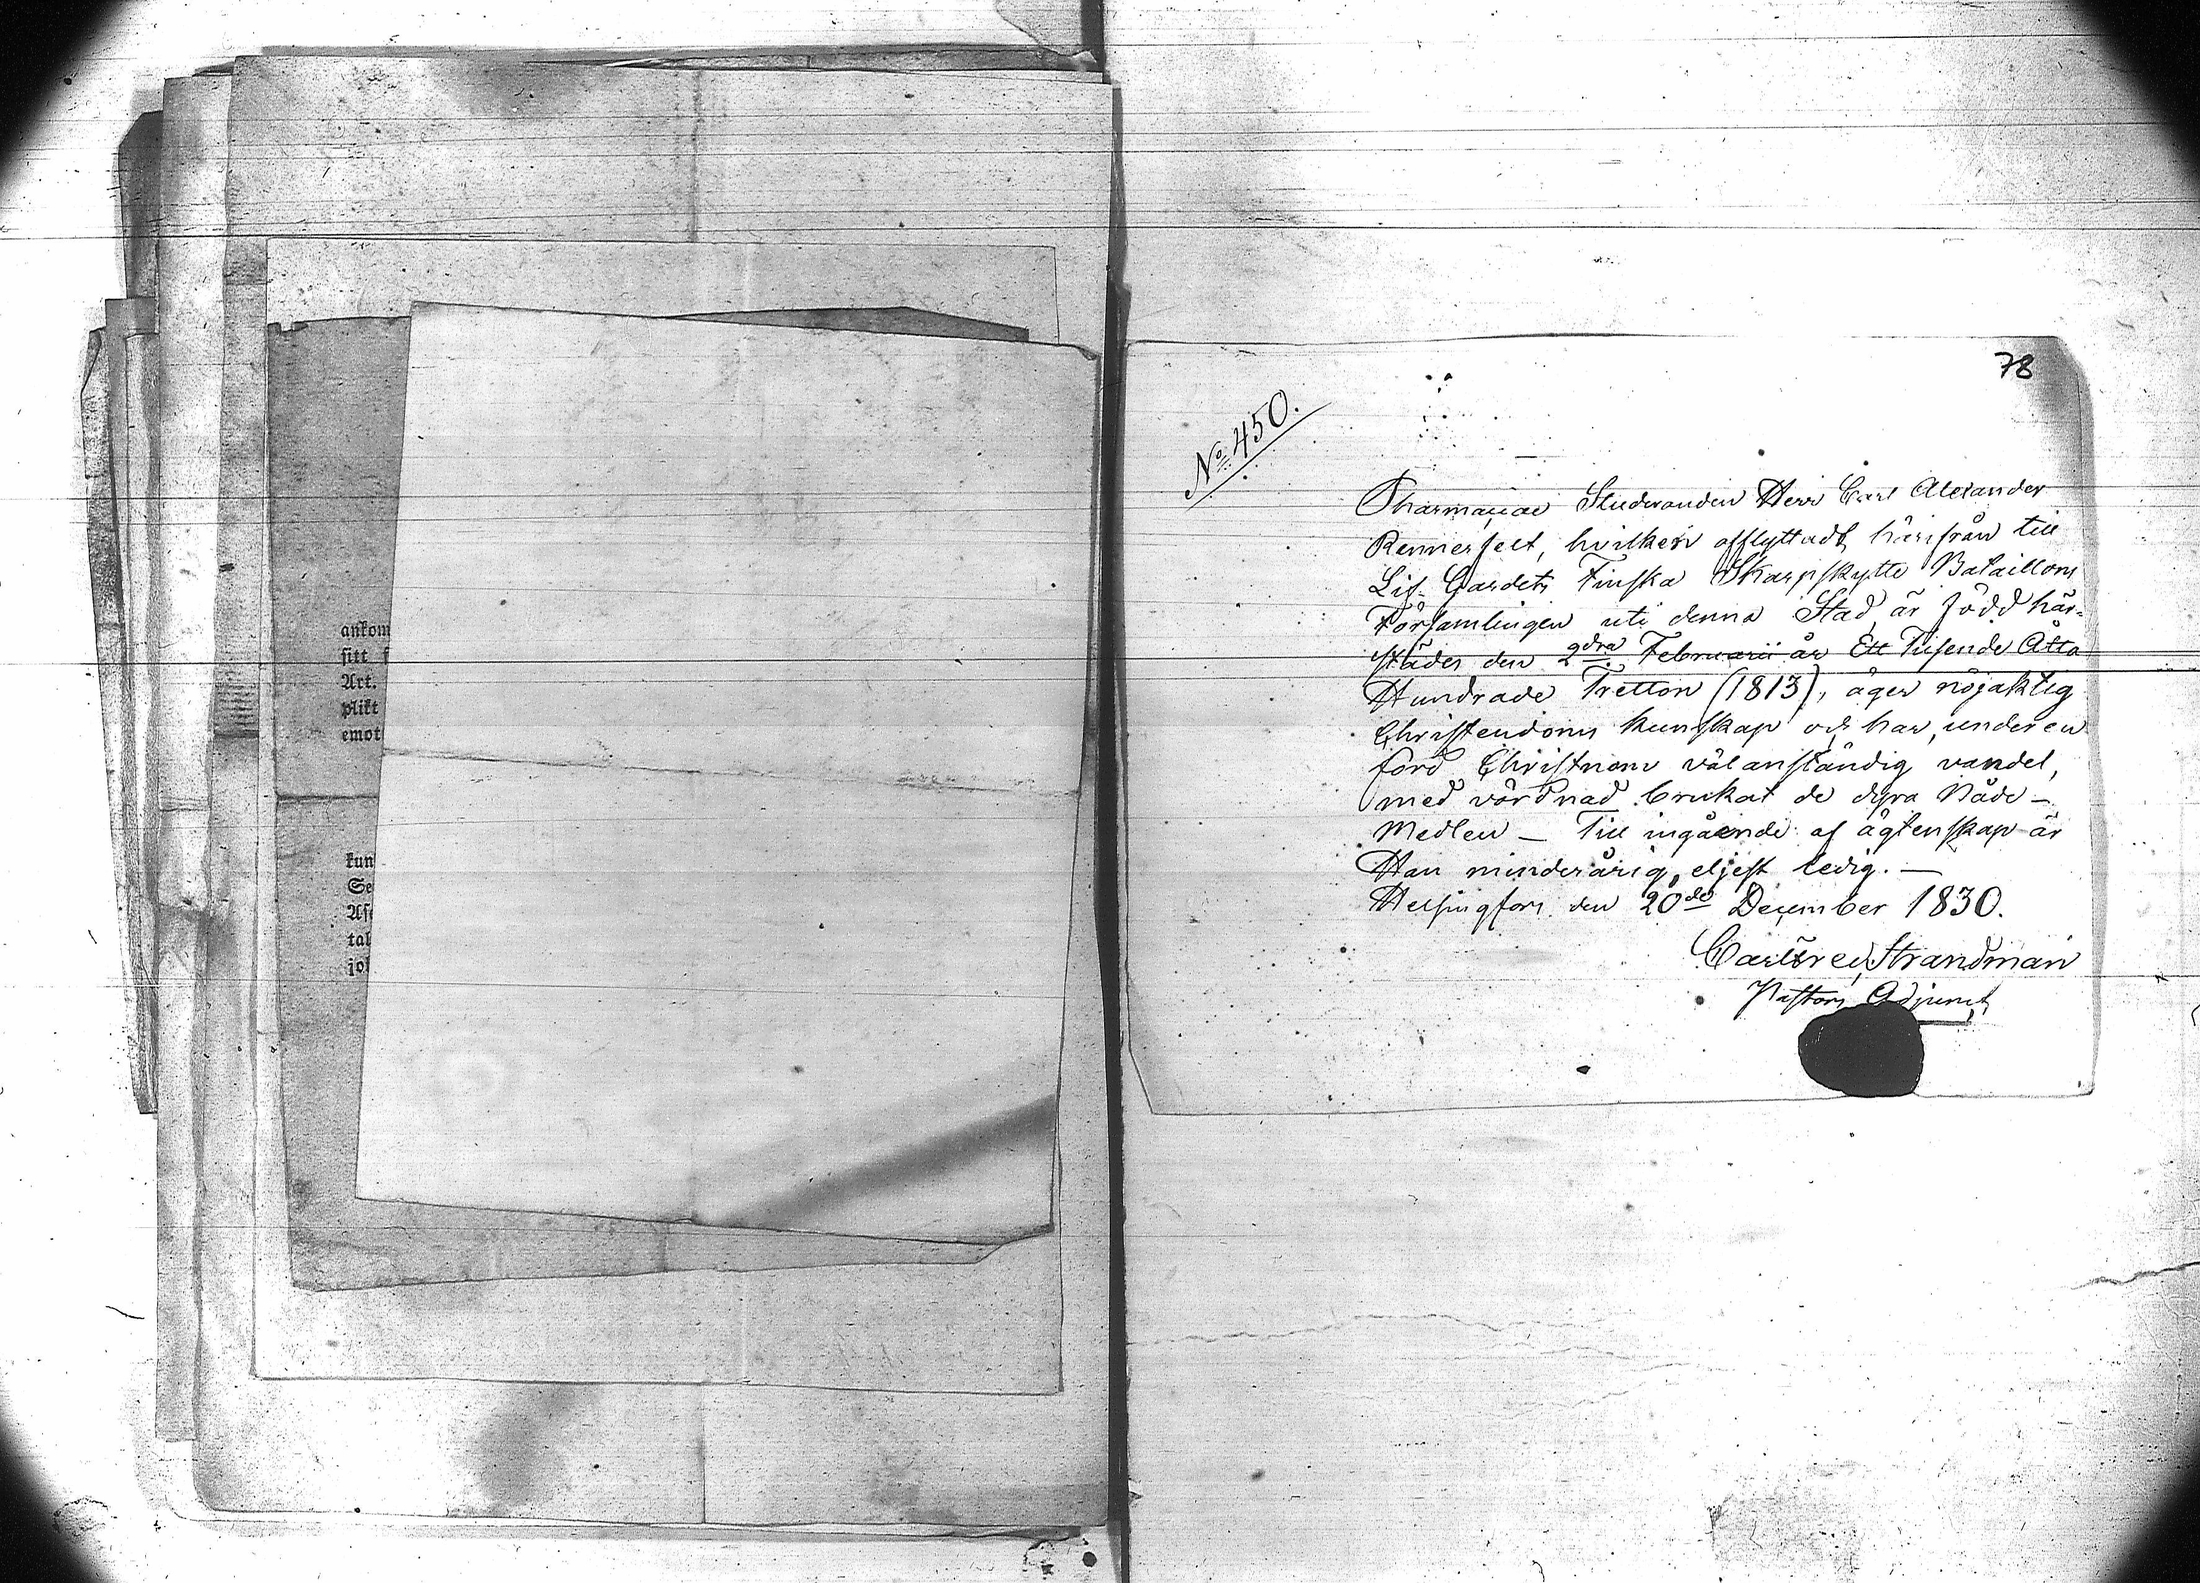 ankom
sitt
Art.
plikt
emot
kun
Se
Afs
tal
jol
78
No 450.
Pharmaciae Studeranden Herr Carl Alexander
Rennerfelt, hvilken afflyttadt härifrån till
Lif-Gardets Finska Skarpskytte Bataillons
Församlingen uti denna Stad, är född här-
städes den 2dra Februarii år Ett Tusende Åtta
Hundrade Tretton (1813), äger nöjaktig
Christendoms kunskap och har, under en
förd Christnom välanständig vandel,
med vördnad brukat de dyra Nåde-
Medlen — Till ingående af ägtenskap är
Han minderårig, eljest ledig. —
Helsingfors den 20de December 1830.
Carl Fred. Strandman
Pastors Adjunct